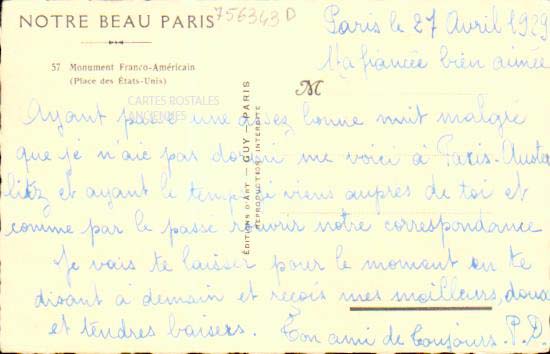 NOTRE BEAU PARIS
756343 D
57 Monument Franco-Américain
(Place des États-Unis)
CARTES POSTALES
ANCIENNES
ÉDITIONS D'ART — GUY — PARIS
REPRODUCTION INTERDITE
M
Paris le 27 Avril 1939
Ma fiancée bien aimée
Ayant passé une assez bonne nuit malgré
que je n'aie pas dormi me voici à Paris-Auster
litz et ayant le temps je viens auprès de toi et
comme par le passé réouvrir notre correspondance
Je vais te laisser pour le moment en te
disant à demain et reçois mes meilleurs, doux
et tendres baisers. Ton ami de toujours. P.D.